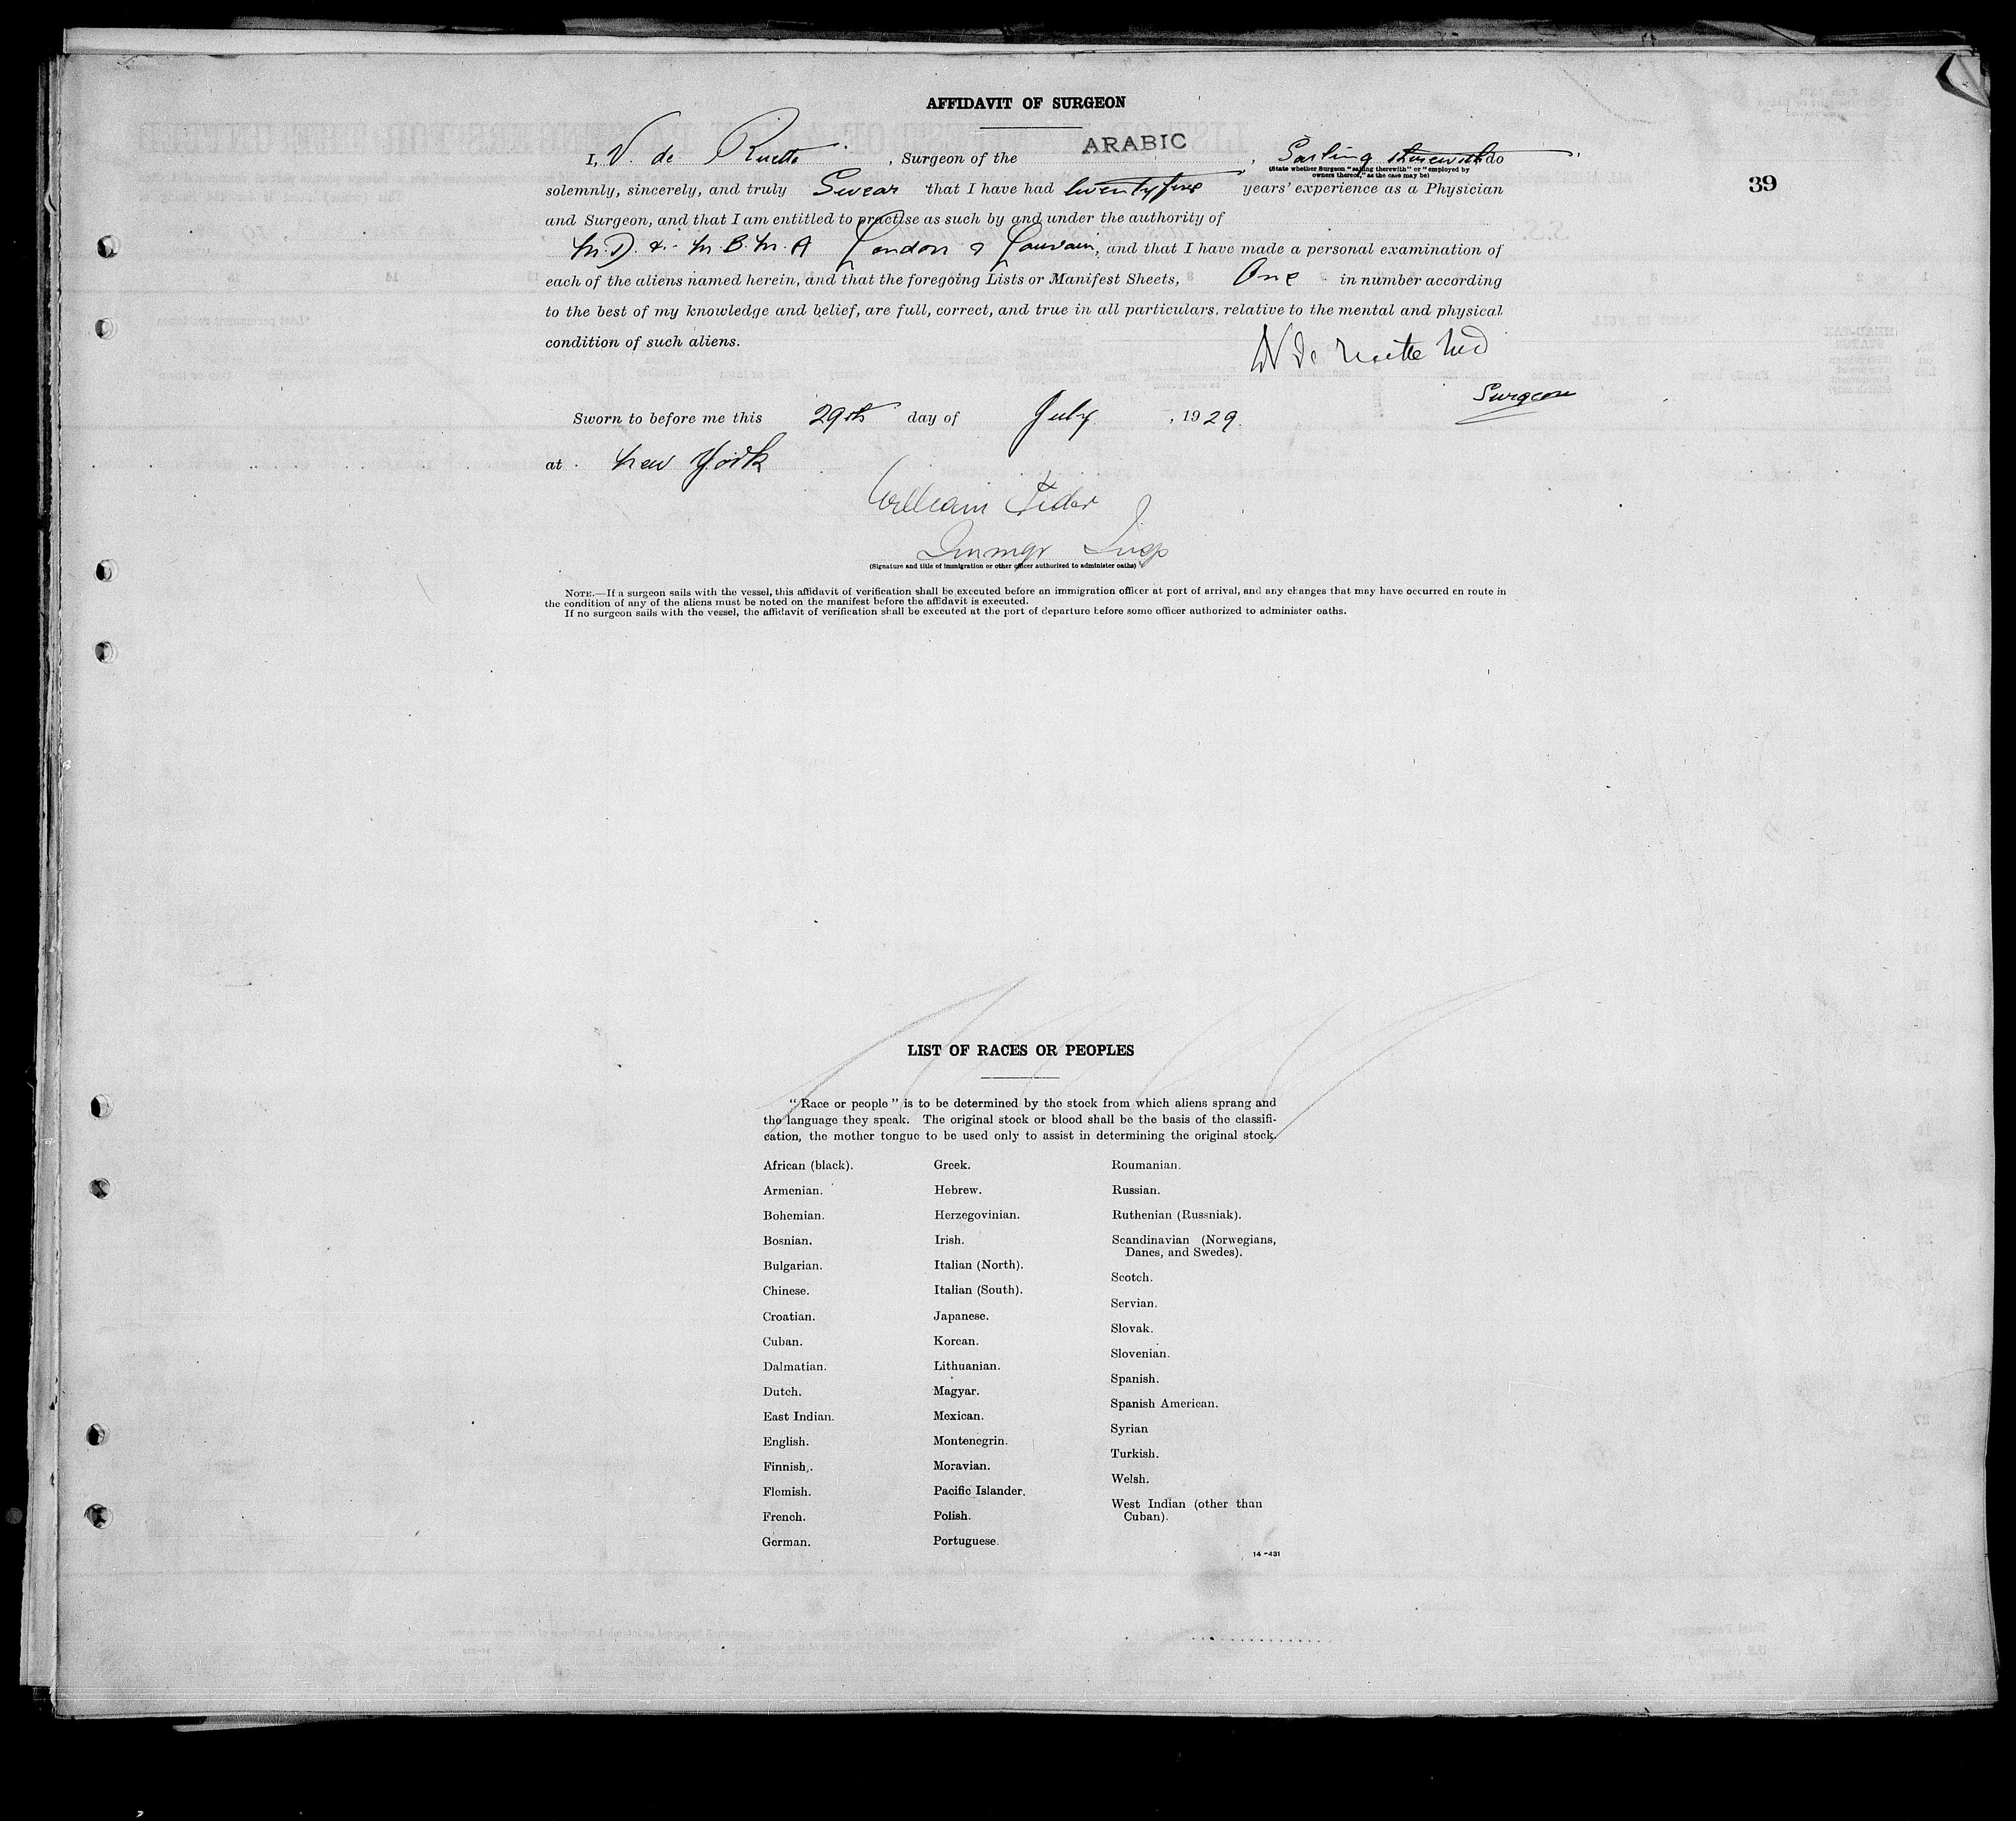 AFFIDAVIT OF SURGEON
I, V. de Ruette, Surgeon of the ARABIC, Sailing therewith do
(State whether Surgeon "sailing therewith" or "employed by
owners thereof," as the case may be)
39
solemnly, sincerely, and truly Swear that I have had years' experience as a Physician
and Surgeon, and that I am entitled to practise as such by and under the authority of
M.D. & M.B.M.A London & Louvain, and that I have made a personal examination of
each of the aliens named herein, and that the foregoing Lists or Manifest Sheets, One in number according
to the best of my knowledge and belief, are full, correct, and true in all particulars, relative to the mental and physical
condition of such aliens.
V De Ruette MD
Surgeon
Sworn to before me this 29th day of July, 1929.
at New York
William
Immgr Insp
(Signature and title of immigration or other officer authorized to administer oaths)
NOTE.—If a surgeon sails with the vessel, this affidavit of verification shall be executed before an immigration officer at port of arrival, and any changes that may have occurred en route in
the condition of any of the aliens must be noted on the manifest before the affidavit is executed.
If no surgeon sails with the vessel, the affidavit of verification shall be executed at the port of departure before some officer authorized to administer oaths.
LIST OF RACES OR PEOPLES
"Race or people" is to be determined by the stock from which aliens sprang and
the language they speak. The original stock or blood shall be the basis of the classifi-
cation, the mother tongue to be used only to assist in determining the original stock.
African (black).
Armenian.
Bohemian.
Bosnian.
Bulgarian.
Chinese.
Croatian.
Cuban.
Dalmatian.
Dutch.
East Indian.
English.
Finnish.
Flemish.
French.
German.
Greek.
Hebrew.
Herzegovinian.
Irish.
Italian (North).
Italian (South).
Japanese.
Korean.
Lithuanian.
Magyar.
Mexican.
Montenegrin.
Moravian.
Pacific Islander.
Polish.
Portuguese.
Roumanian.
Russian.
Ruthenian (Russniak).
Scandinavian (Norwegians,
Danes, and Swedes).
Scotch.
Servian.
Slovak.
Slovenian.
Spanish.
Spanish American.
Syrian
Turkish.
Welsh.
West Indian (other than
Cuban).
14-431